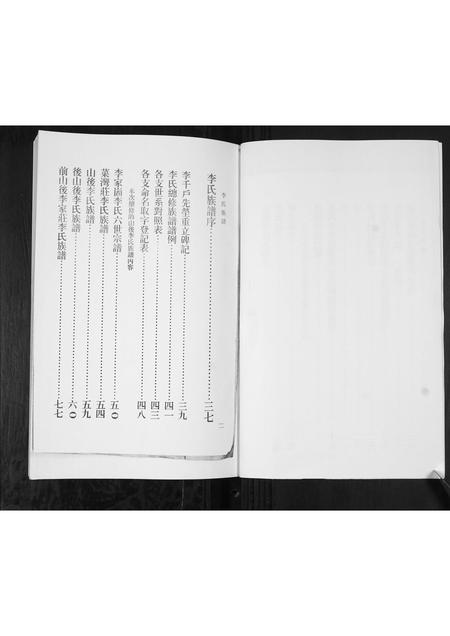 李氏族譜
李氏族譜序 三七
李千戶先塋重立碑記 三九
李氏總修族譜譜例 四一
各支世系對照表 四三
各支命名取字登記表 四八
本次續修的山後李氏族譜內容
李家崮李氏六世宗譜 五〇
菜灣莊李氏族譜 五四
山後李氏族譜 五九
後山後李氏族譜 六〇
前山後李家莊李氏族譜 七七
二